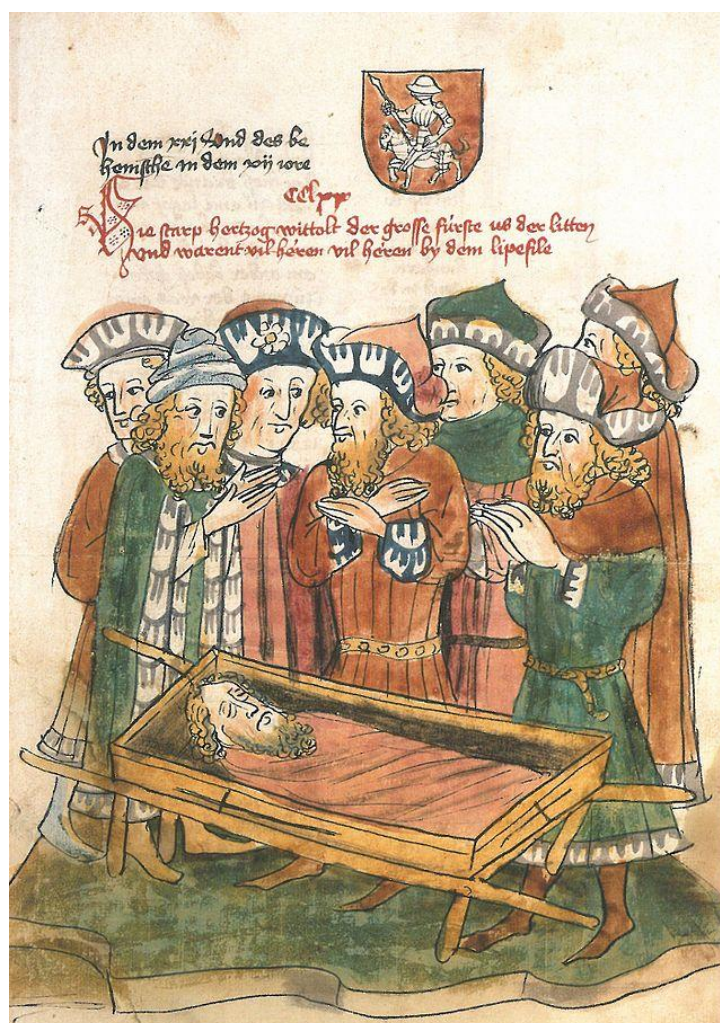 In dem xxj Jond des be
hemische in dem xij iore
cclxx
Hie starp hertzog wittolt der grosse fürste us der litten
vnd warent vil heren vil heren by dem lipefile